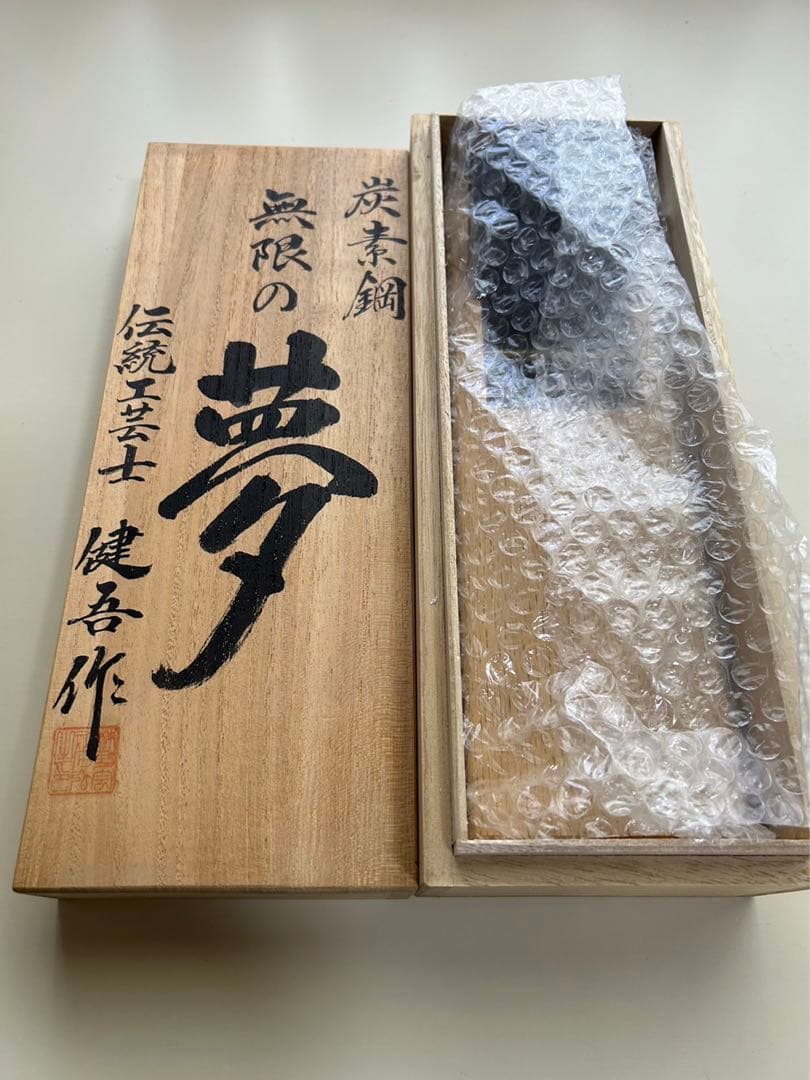 炭素鋼
無限の
夢
伝統工芸士
健吾作